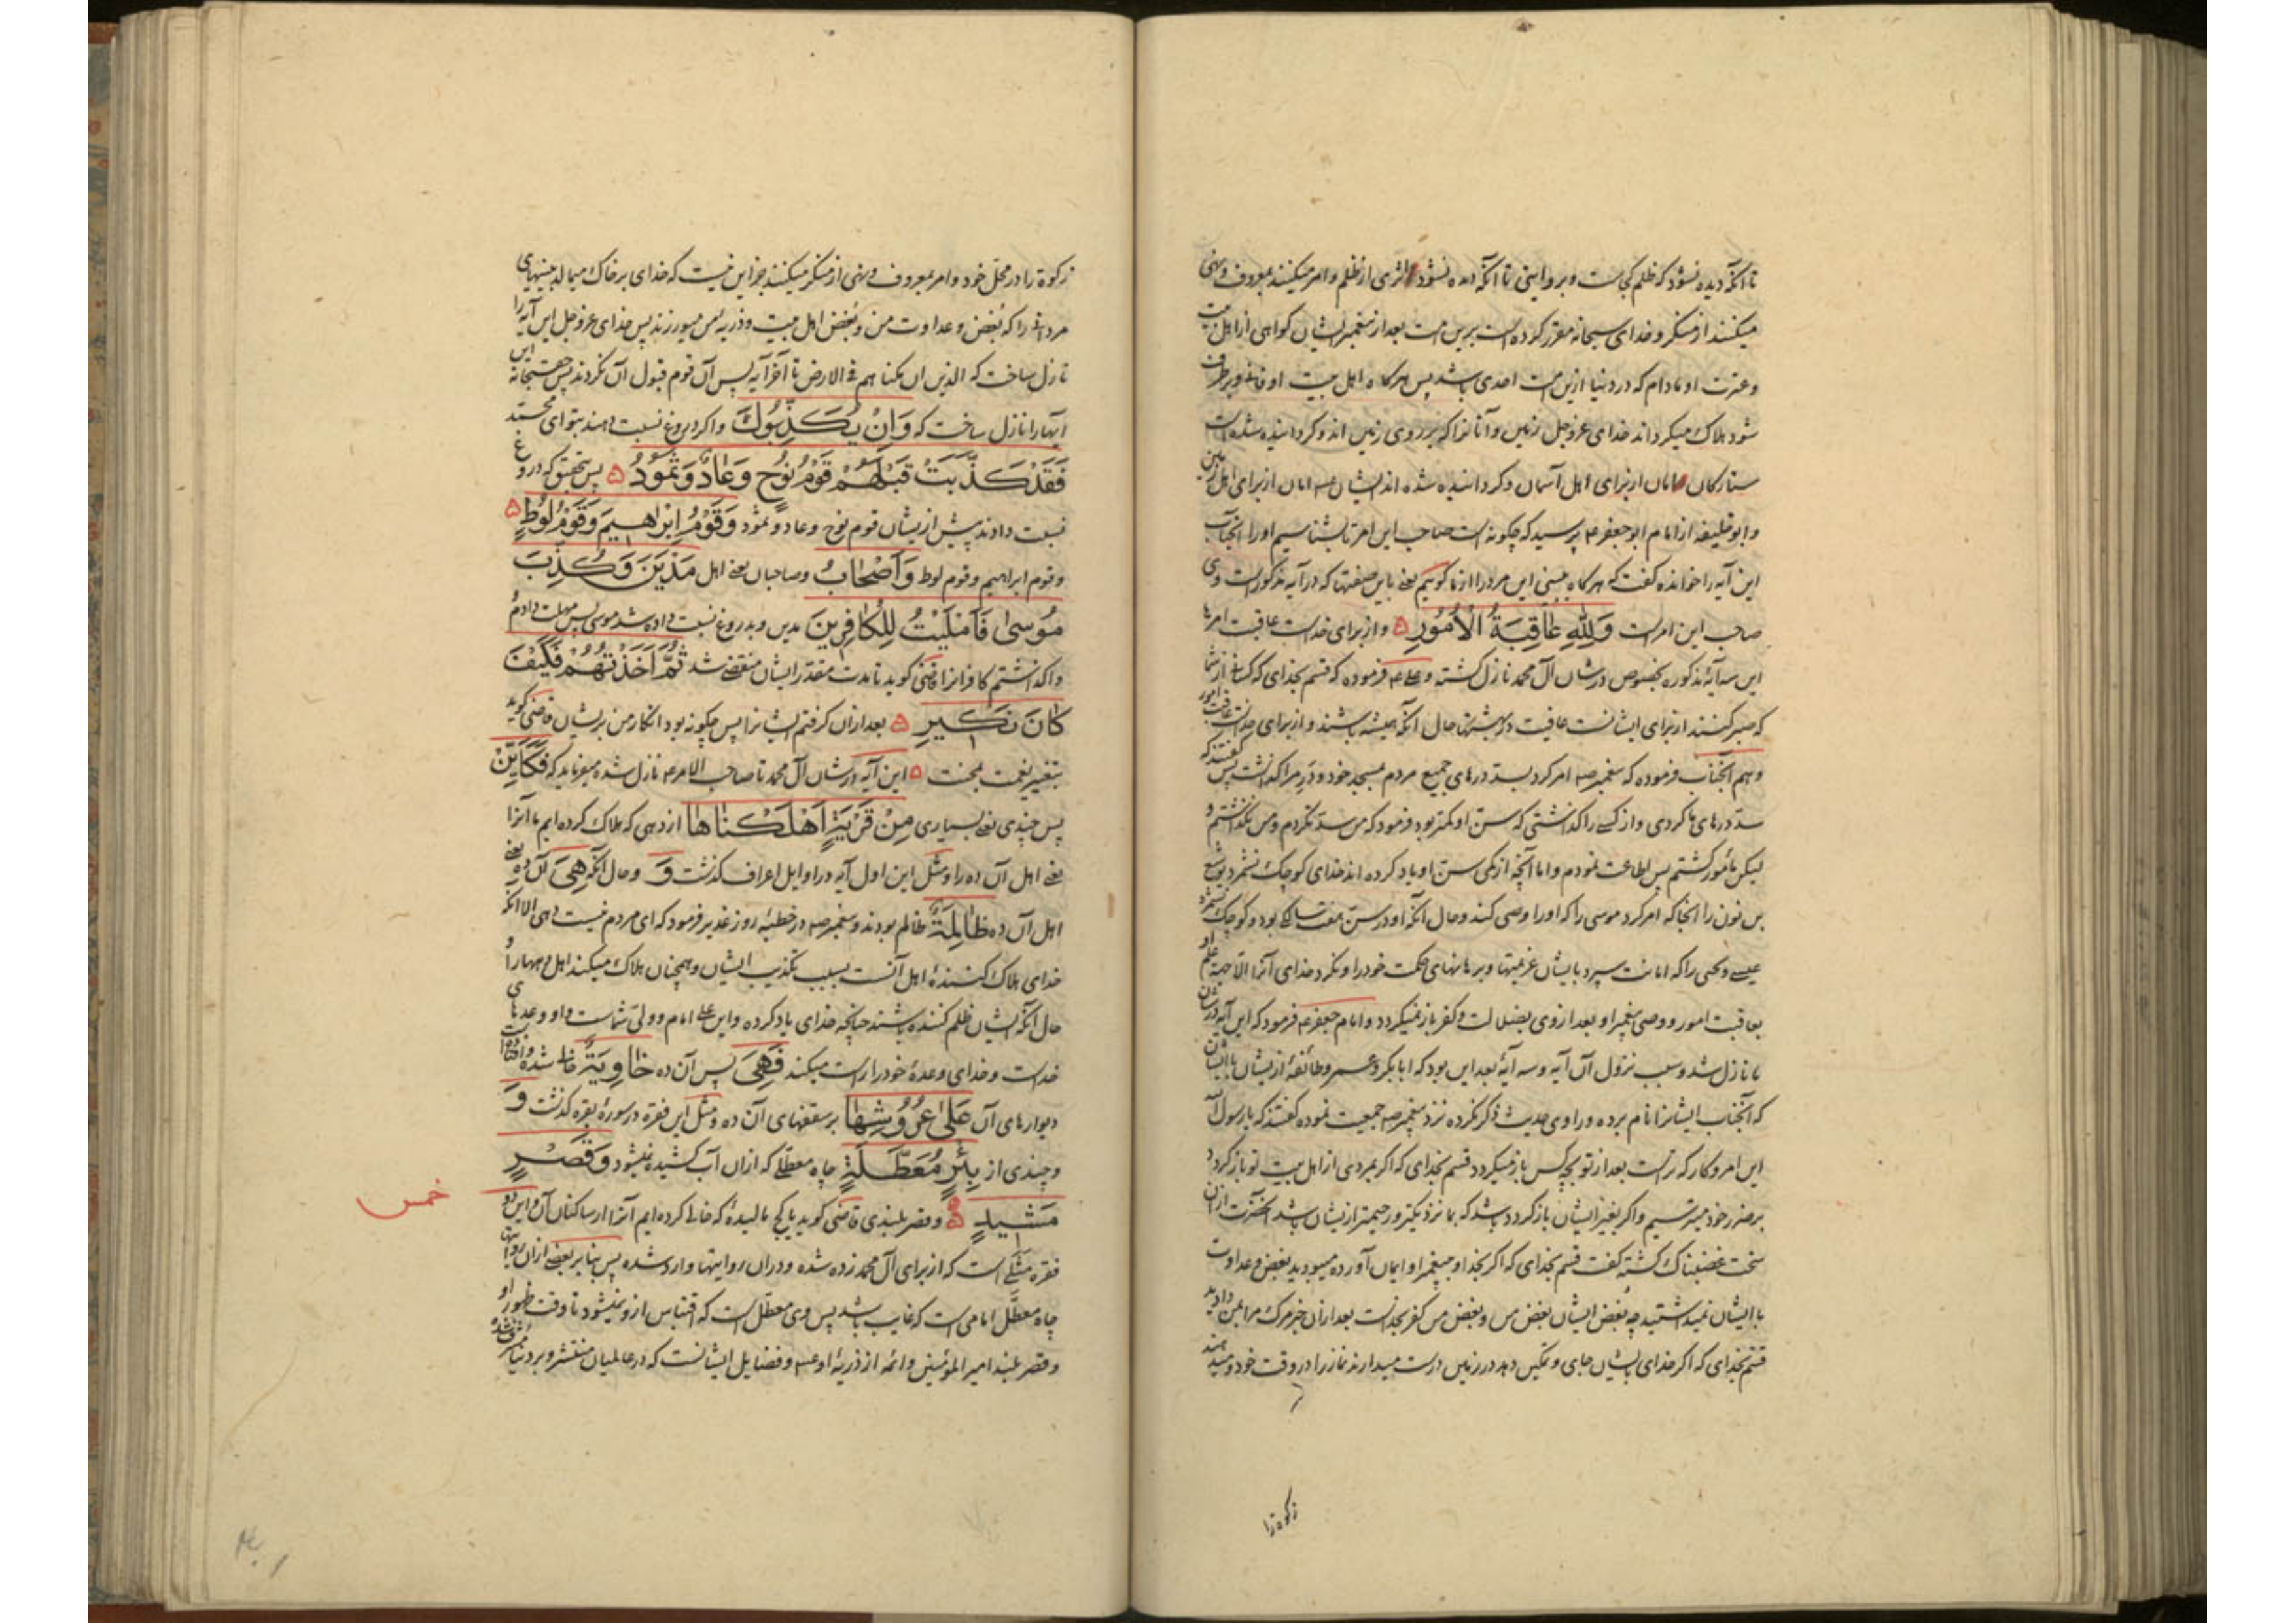 تا آنکه دیده نشود که ظلم کجاست و بروایتی تا آنکه دیده نشود اثری از ظلم و امر میکنند بمعروف و نهی
میکنند از منکر و خدای سبحانه مقرر کرده است برین امت بعد از پیغمبر ایشان گواهی از اهل بیت
و عترت او مادام که در دنیا ازین امت احدی باشد پس هرگاه اهل بیت او فانی و برطرف
شود هلاک میگرداند خدای عز و جل زمین و آنانرا که بر روی زمین اند و گردانیده شده است
ستارگان امان از برای اهل آسمان و گردانیده شده اند ایشان امان از برای اهل زمین
و ابو خلیفه از امام ابو جعفر ع پرسید که چگونه است صاحب این امر تا بشناسیم او را آنجناب
این آیه را خوانده گفت که هرگاه ببینی این مرد را از ما گوییم یعنی باین صفتها که در آیه مذکور است وی
صاحب این امر است وَلِلّٰهِ عَاقِبَةُ الْأُمُورِ ۵ و از برای خداست عاقبت امرها
این سه آیهٔ مذکوره بخصوص در شان آل محمد نازل گشته و علی ع فرموده که قسم بخدای که کسانی از شما
که صبر کنند از برای ایشانست عاقبت در بهشتها حال آنکه همیشه باشند و از برای خداست عاقبت امور
و هم آنجناب فرموده که پیغمبر ص امر کرد بسد درهای جمیع مردم مسجد خود و در مرا گذاشت پس گفتند که
سد درهای ما کردی و از کسی را گذاشتی که سن او کمتر بود فرمود که من سد نکردم و من نگذاشتم و
لیکن مأمور گشتم پس اطاعت نمودم و اما آنچه از کمی سن او یاد کرده اند خدای کوچک نشمرد یوشع
بن نون را آنجا که امر کرد موسی را که او را وصی کند و حال آنکه او در سن هفت سالگی بود و کوچک نشمرد
عیسی و یحیی را که امانت سپرد بایشان عزیمتها و برهانهای حکمت خود را و نکرد خدای آنرا الا جهة علم او
بعاقبت امور و وصی پیغمبر او بعد از وی بضلالت و کفر باز نمیگردد و امام جعفر ع فرمود که این آیه در شان
ما نازل شد و سبب نزول آن آیه و سه آیهٔ بعد این بود که ابابکر و عمر و طائفهٔ از ایشان با ایشان
که آنجناب ایشانرا نام برده و راوی حدیث ذکر نکرده نزد پیغمبر ص جمعیت نموده گفتند که یا رسول الله
این امر و کار که تراست بعد از تو بچه کس باز میگردد قسم بخدای که اگر بمردی از اهل بیت تو باز گردد
بر ضرر خود میترسیم و اگر بغیر ایشان باز گردد باشد که بما نزدیکتر و رحیمتر از ایشان باشد آنحضرت از آن
سخت غضبناک گشته گفت قسم بخدای که اگر بخدا و پیغمبر او ایمان آورده میبودید بغض و عداوت
با ایشان نمیداشتید چه بغض ایشان بغض من و بغض من کفر بخداست بعد از آن خبر مرگ مرا بمن دادید
قسم بخدای که اگر خدای ایشان جای و تمکین دهد در زمین درست میدارند نماز را در وقت خود و میدهند
زکوة را
زکوة را در محل خود و امر بمعروف و نهی از منکر میکنند جز این نیست که خدای بر خاک میمالد بینیهای
مردانی را که بغض و عداوت من و بغض اهل بیت و ذریه من میورزند پس خدای عز و جل این آیه را
نازل ساخت که الذین ان مکناهم فی الارض تا آخر آیه پس آن قوم قبول آن نکردند پس حق سبحانه این
آیها را نازل ساخت که وَاِنْ یُکَذِّبُوكَ و اگر دروغ نسبت دهند بتو ای محمد
فَقَدْ كَذَّبَتْ قَبْلَهُمْ قَوْمُ نُوحٍ وَعَادٌ وَثَمُودُ ۵ پس بتحقیق که دروغ
نسبت دادند پیش از ایشان قوم نوح و عاد و ثمود وَقَوْمُ اِبْرٰهِیمَ وَقَوْمُ لُوطٍ ۵
و قوم ابراهیم و قوم لوط وَاَصْحَابُ و صاحبان یعنی اهل مَدْیَنَ وَكُذِّبَ
مُوسٰی فَاَمْلَیْتُ لِلْكَافِرِینَ مدین و بدروغ نسبت داده شد موسی پس مهلت دادم
و اگذاشتم کافرانرا قاضی گوید تا مدت مقدر ایشان منقضی شد ثُمَّ اَخَذْتُهُمْ فَكَیْفَ
كَانَ نَكِیرِ ۵ بعد از آن گرفتم ایشانرا پس چگونه بود انکار من بر ایشان قاضی گوید
بتغییر نعمت بمحنت ۵ این آیه در شان آل محمد تا صاحب الامر ع نازل شده میفرماید که فَكَاَیِّنْ
پس چندی یعنی بسیاری مِنْ قَرْیَةٍ اَهْلَكْنَاهَا از دهی که هلاک کرده ایم ما آنرا
یعنی اهل آن ده را و مثل این اول آیه در اوایل اعراف گذشت وَ و حال آنکه هِیَ آن ده یعنی
اهل آن ده ظَالِمَةٌ ظالم بودند و پیغمبر ص در خطبهٔ روز غدیر فرمود که ای مردم نیست دهی الا آنکه
خدای هلاک کنندهٔ اهل آنست بسبب تکذیب ایشان و همچنان هلاک میکند اهل دهها را
حال آنکه ایشان ظلم کننده باشند چنانچه خدای یاد کرده و این علی امام و ولی شماست و او وعدهای
خداست و خدای وعدهٔ خود را راست میکند فَهِیَ پس آن ده خَاوِیَةٌ خالی شده و افتاده است
دیوارهای آن عَلٰی عُرُوشِهَا بر سقفهای آن ده و مثل این فقره در سورهٔ بقره گذشت وَ
و چندی از بِئْرٍ مُعَطَّلَةٍ چاه معطلی که از آن آب کشیده نمیشود وَقَصْرٍ
مَشِیدٍ ۵ و قصر بلندی قاضی گوید یا گچ مالیدهٔ که خالی کرده ایم آنرا از ساکنان آن و این دو
خمس
فقره مثلی است که از برای آل محمد زده شده و در آن روایتها وارد شده پس بنابر بعضی از آن روایتها
چاه معطل امامی است که غایب باشد پس وی معطل است که اقتباس از و نمیشود تا وقت ظهور او
و قصر بلند امیر المؤمنین و ائمه از ذریهٔ او ع و فضایل ایشانست که در عالمیان منتشر و بر دنیا مشرف شده